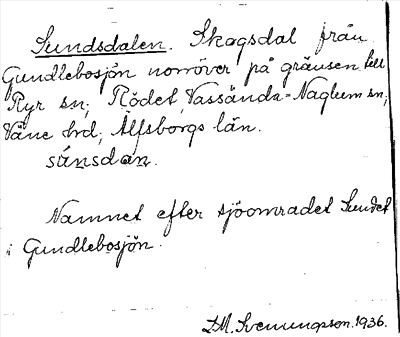 Sundsdalen. Skogsdal från
Gundlebosjön norröver på gränsen till
Ryr sn; Rödet, Vassända-Naglum sn,
Väne hrd, Älfsborgs län.
súnsdan.
Namnet efter sjöområdet Sundet
i Gundlebosjön.
D.M. Svenungsson. 1936.